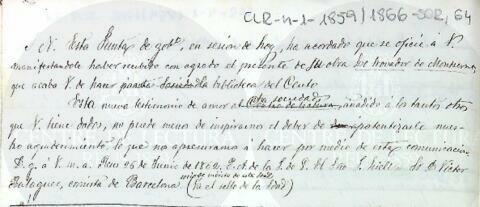 CLR-n-1-1859/1866-SOR, 64
N. Esta Junta de gobº, en sesion de hoy, ha acordado que se oficie á V.
manifestandole haber recibido con agrado el presente de su obra Lo trovador de Monserrat
que acaba V. de hacer para la Sociedad biblioteca del Centro
Este nuevo testimonio de amor al Centro de lectura, añadido á los tantos otros
esta sociedad
que V. tiene dados, no puede menos de inspirarnos el deber de patentizarle nues-
tro agradecimiento, lo que nos apresuramos á hacer por medio de esta comunicacion
D. g. á V. m. a. Reus 25 de Junio de 1862. El
Sr. D. Victor
Balaguer, cronista de Barcelona (Va el sello de la Sdad)